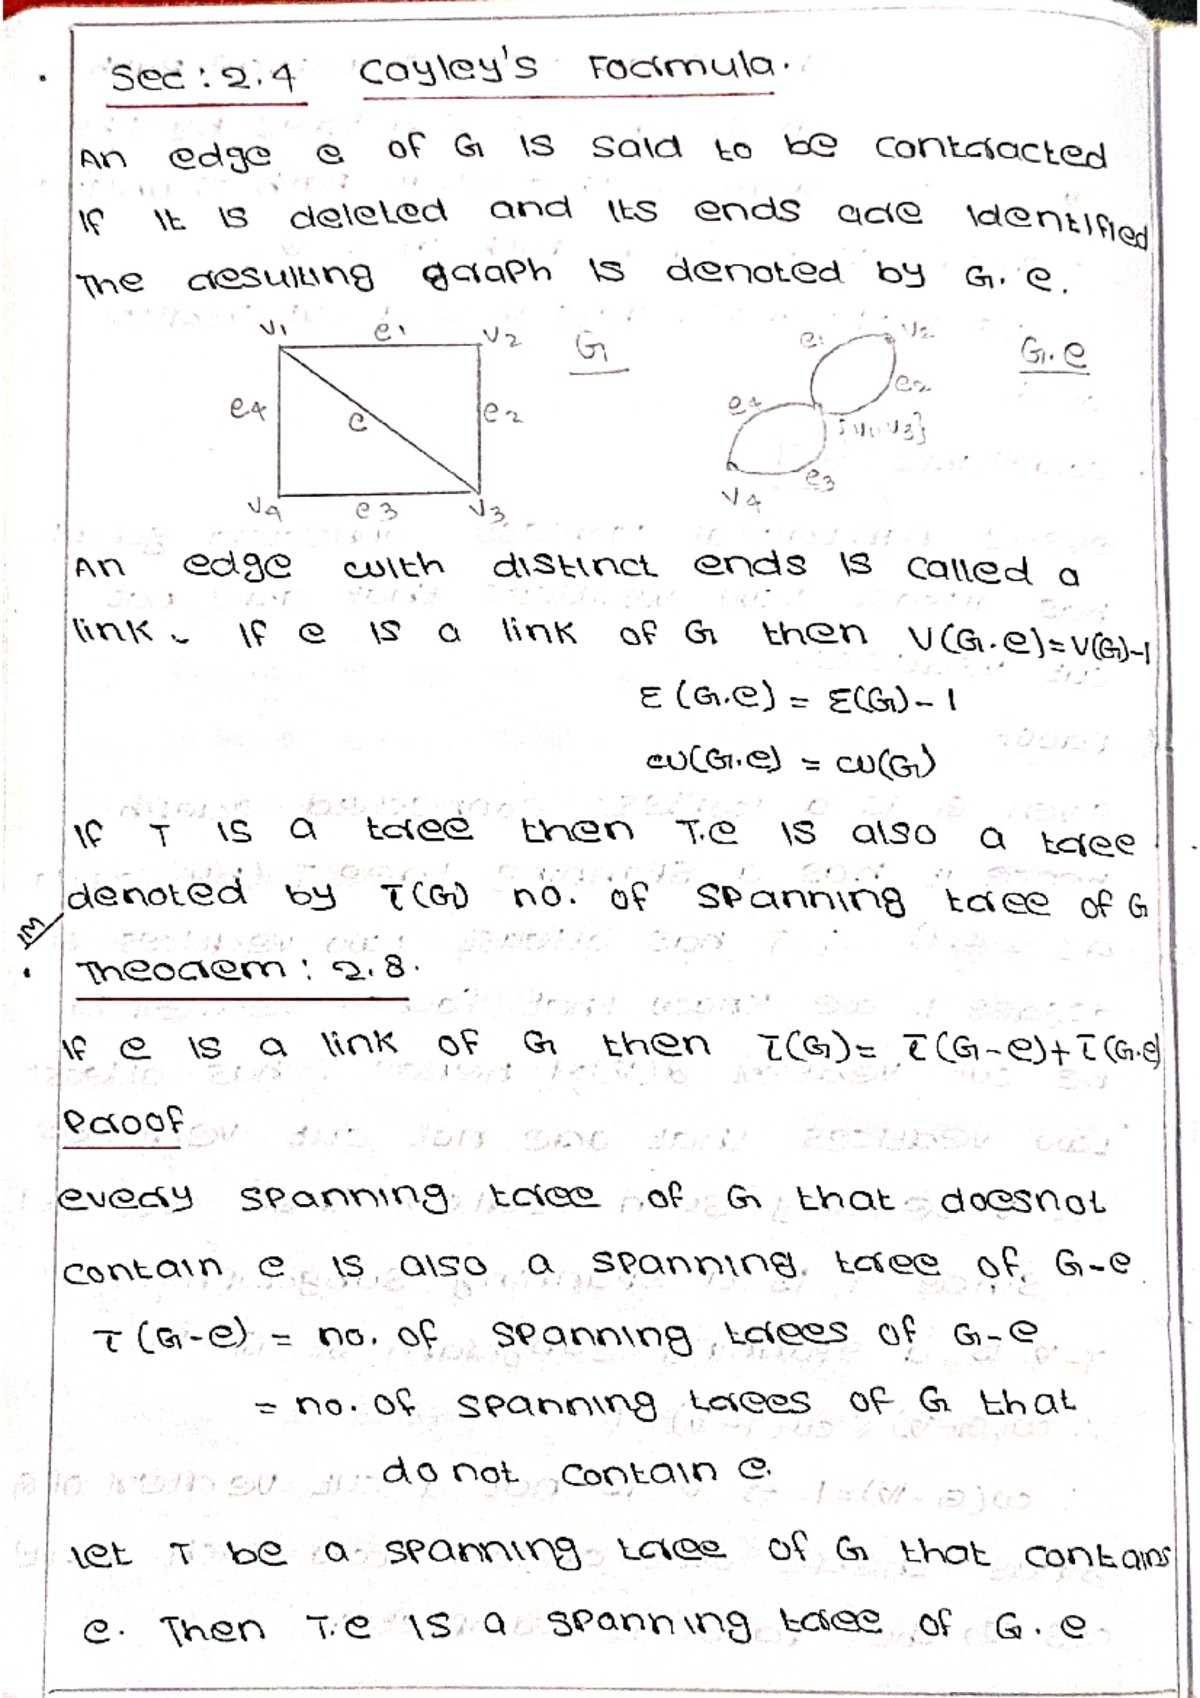 Sec : 2.4 Cayley's Formula.
An edge e of G is said to be contracted
if it is deleted and its ends are identified
The resulting graph is denoted by G.e.
v1 e1 v2 G
e4 e e2
v4 e3 v3
e1 v2 G.e
e2
e4 {v1,v3}
e3
v4
An edge with distinct ends is called a
link. If e is a link of G then ν(G.e)=ν(G)-1
ε(G.e) = ε(G)-1
ω(G.e) = ω(G)
If T is a tree then T.e is also a tree
denoted by τ(G) no. of spanning tree of G
IM
Theorem : 2.8.
If e is a link of G then τ(G)= τ(G-e)+τ(G.e)
Proof
every spanning tree of G that doesnot
contain e is also a spanning tree of G-e
τ(G-e) = no. of spanning trees of G-e
= no. of spanning trees of G that
do not contain e.
let T be a spanning tree of G that contains
e. Then T.e is a spanning tree of G.e